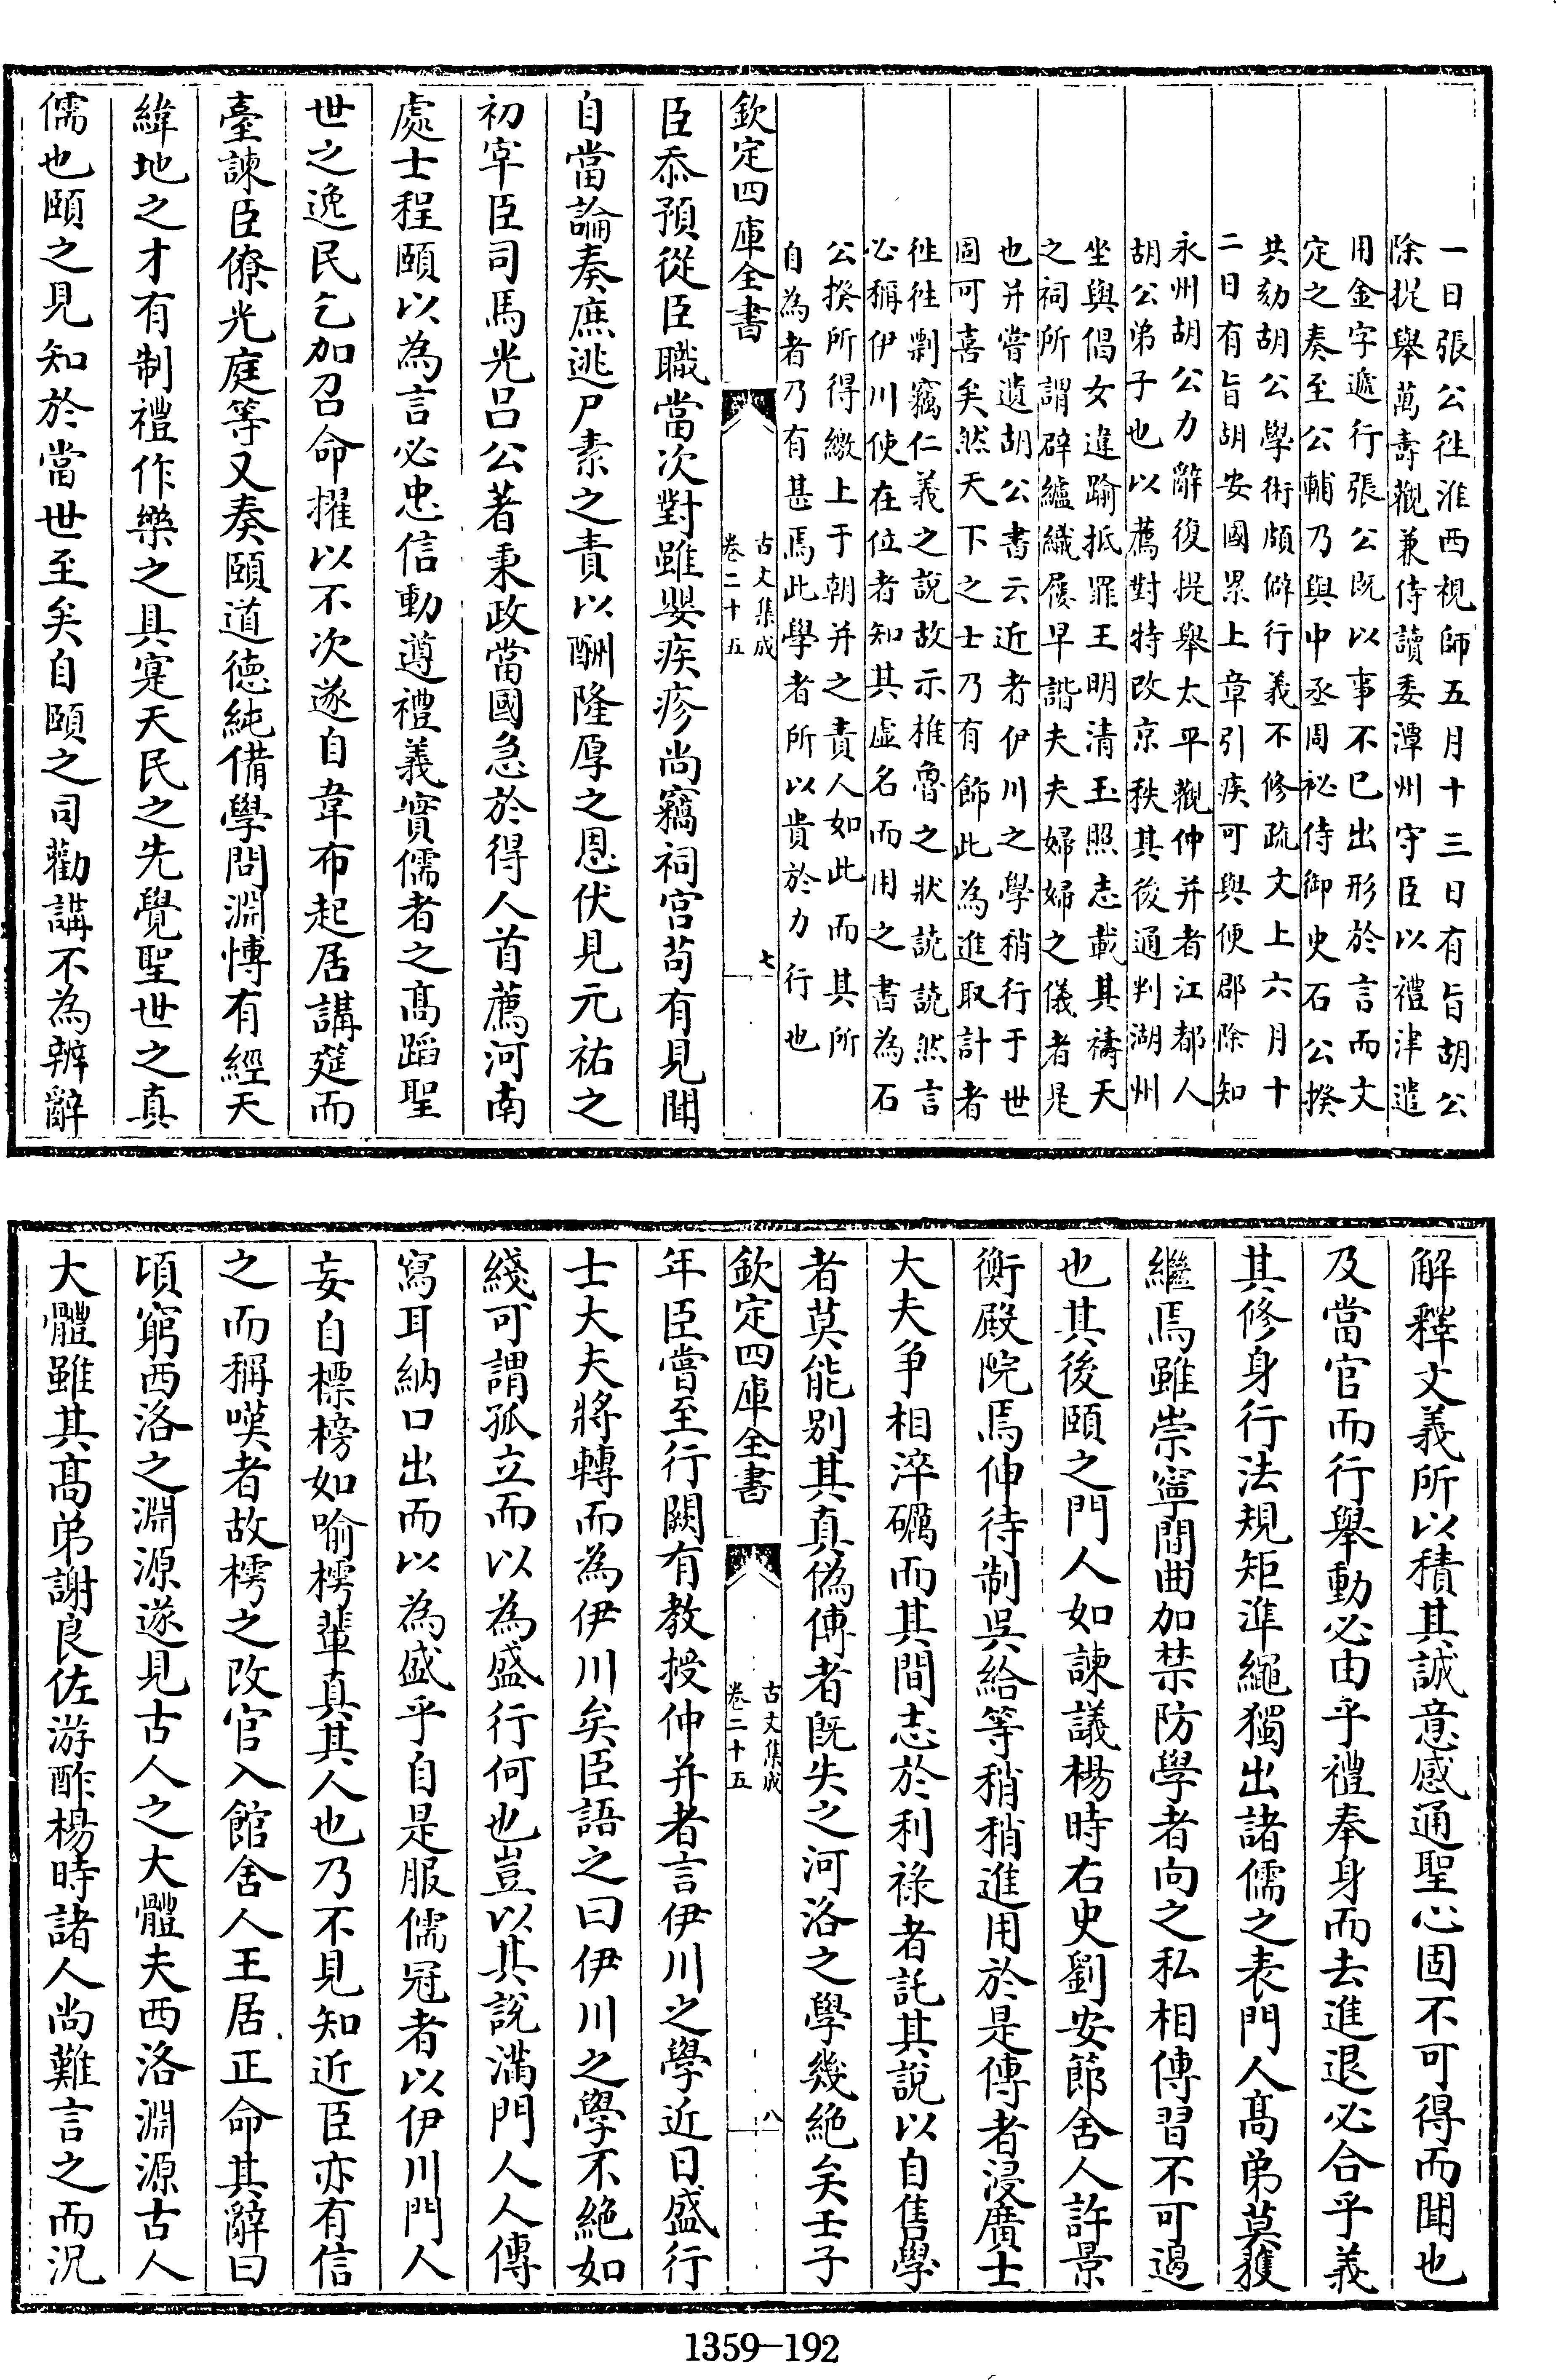 一日張公往淮西視師五月十三日有旨胡公
除提舉萬壽觀兼侍讀委潭州守臣以禮津遣
用金字遞行張公既以事不已出形於言而文
定之奏至公輔乃與中丞周祕侍御史石公揆
共劾胡公學術頗僻行義不修疏文上六月十
二日有旨胡安國累上章引疾可與便郡除知
永州胡公力辭復提舉太平觀仲并者江都人
胡公弟子也以薦對特改京秩其後通判湖州
坐與倡女違踰抵罪王明清玉照志載其禱天
之祠所謂辟纑織屨早諧夫夫婦婦之儀者是
也并嘗遺胡公書云近者伊川之學稍行于世
固可喜矣然天下之士乃有飾此為進取計者
徃徃剽竊仁義之說故示椎魯之狀詵詵然言
必稱伊川使在位者知其虛名而用之書為石
公揆所得繳上于朝并之責人如此而其所
自為者乃有甚焉此學者所以貴於力行也
欽定四庫全書
古文集成
卷二十五
七
臣忝預從臣職當次對雖嬰疾疹尚竊祠宮苟有見聞
自當論奏庶逃尸素之責以酬隆厚之恩伏見元祐之
初宰臣司馬光呂公著秉政當國急於得人首薦河南
處士程頤以為言必忠信動遵禮義實儒者之高蹈聖
世之逸民乞加召命擢以不次遂自韋布起居講筵而
臺諫臣僚光庭等又奏頤道德純備學問淵博有經天
緯地之才有制禮作樂之具寔天民之先覺聖世之真
儒也頤之見知於當世至矣自頤之司勸講不為辨辭
解釋文義所以積其誠意感通聖心固不可得而聞也
及當官而行舉動必由乎禮奉身而去進退必合乎義
其修身行法規矩準繩獨出諸儒之表門人高弟莫獲
繼焉雖崇寧間曲加禁防學者向之私相傳習不可遏
也其後頤之門人如諫議楊時右史劉安節舍人許景
衡殿院焉伸待制吳給等稍稍進用於是傳者浸廣士
大夫爭相淬礪而其間志於利祿者託其說以自售學
者莫能別其真偽傳者既失之河洛之學幾絕矣壬子
欽定四庫全書
古文集成
卷二十五
八
年臣嘗至行闕有教授仲并者言伊川之學近日盛行
士大夫將轉而為伊川矣臣語之曰伊川之學不絕如
綫可謂孤立而以為盛行何也豈以其說滿門人人傳
寫耳納口出而以為盛乎自是服儒冠者以伊川門人
妄自標榜如喻樗輩真其人也乃不見知近臣亦有信
之而稱嘆者故樗之改官入館舍人王居正命其辭曰
頃窮西洛之淵源遂見古人之大體夫西洛淵源古人
大體雖其高弟謝良佐游酢楊時諸人尚難言之而況
1359-192